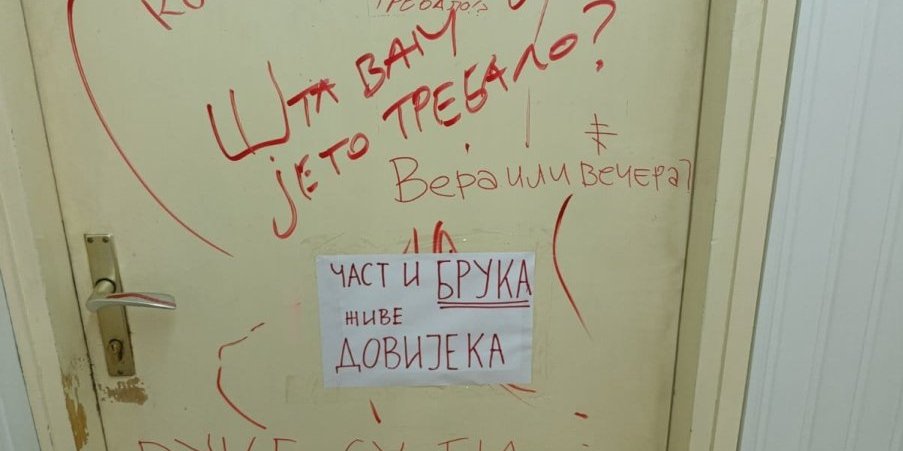 ТРЕБАЛО?
ШТА ВАМ
ЈЕ ТО ТРЕБАЛО?
Вера или ВЕЧЕРА?
ЧАСТ И БРУКА
ЖИВЕ
ДОВИЈЕКА